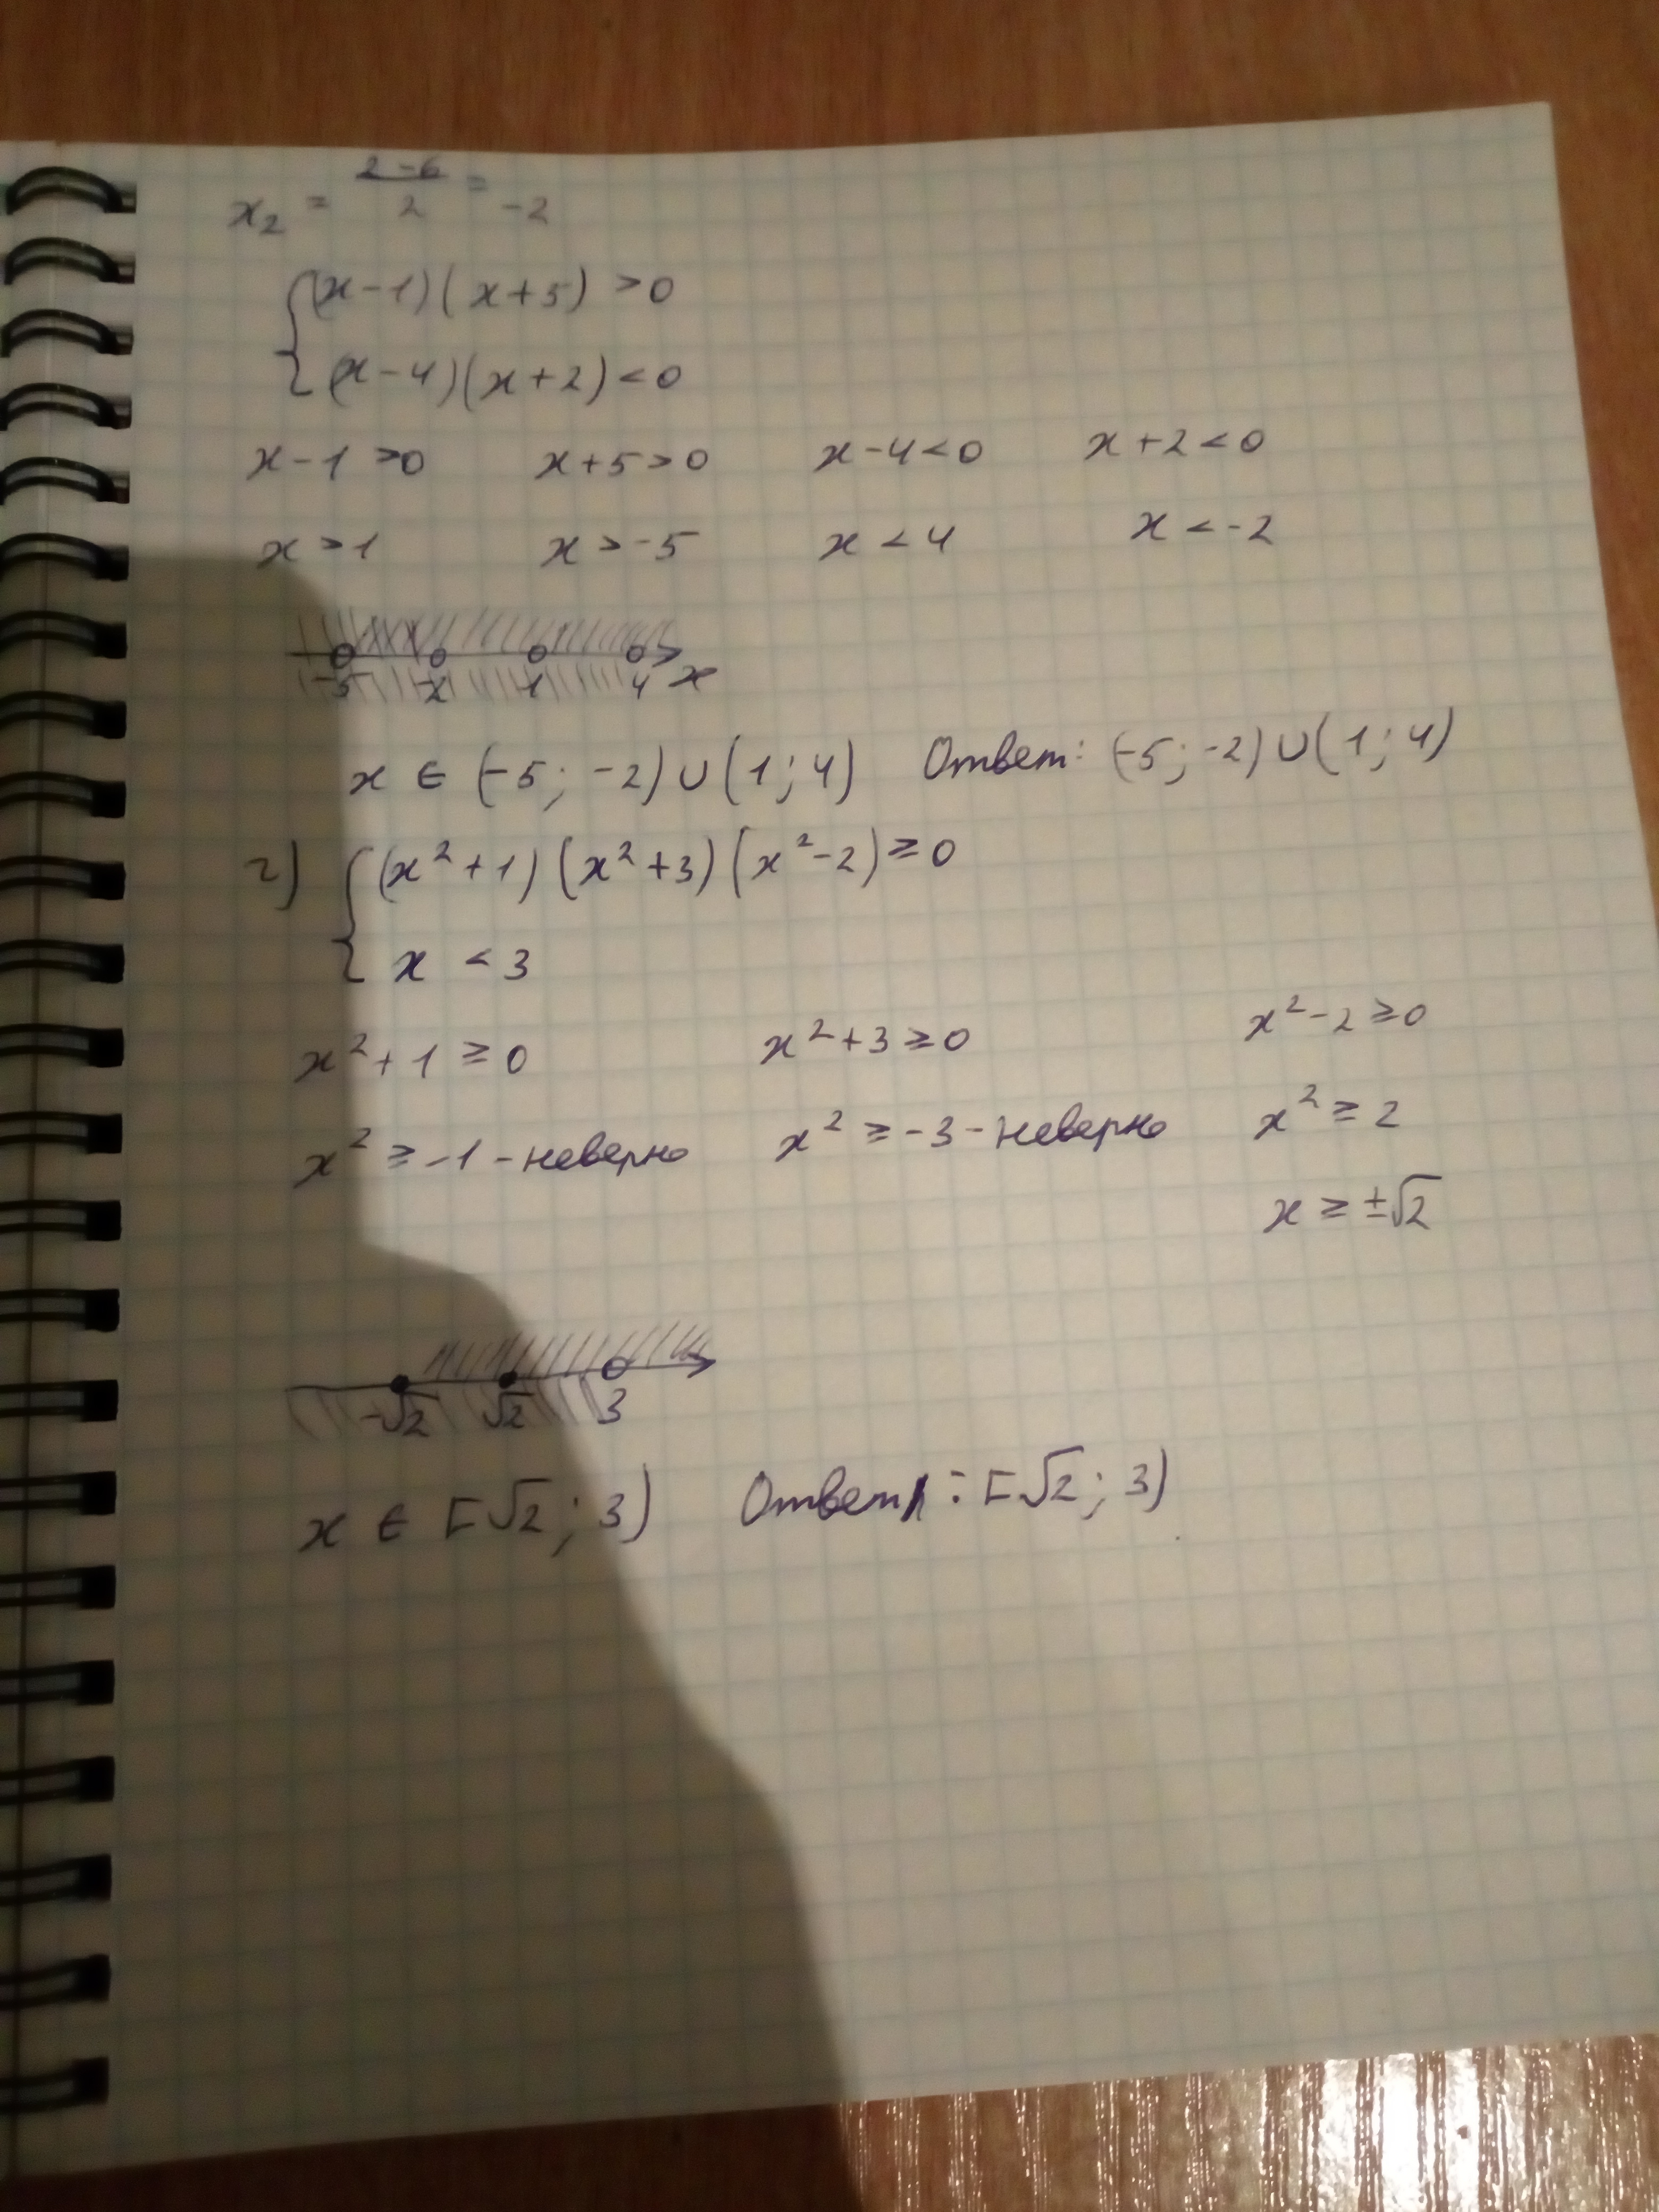 x₂ = (2-6)/2 = -2
{ (x-1)(x+5) > 0
(x-4)(x+2) < 0
x-1 > 0 x+5 > 0 x-4 < 0 x+2 < 0
x > 1 x > -5 x < 4 x < -2
-5 -2 1 4 x
x ∈ (-5; -2) ∪ (1; 4) Ответ: (-5; -2) ∪ (1; 4)
г) { (x²+1)(x²+3)(x²-2) ≥ 0
x < 3
x²+1 ≥ 0 x²+3 ≥ 0 x²-2 ≥ 0
x² ≥ -1 - неверно x² ≥ -3 - неверно x² ≥ 2
x ≥ ±√2
-√2 √2 3
x ∈ [√2; 3) Ответ: [√2; 3)